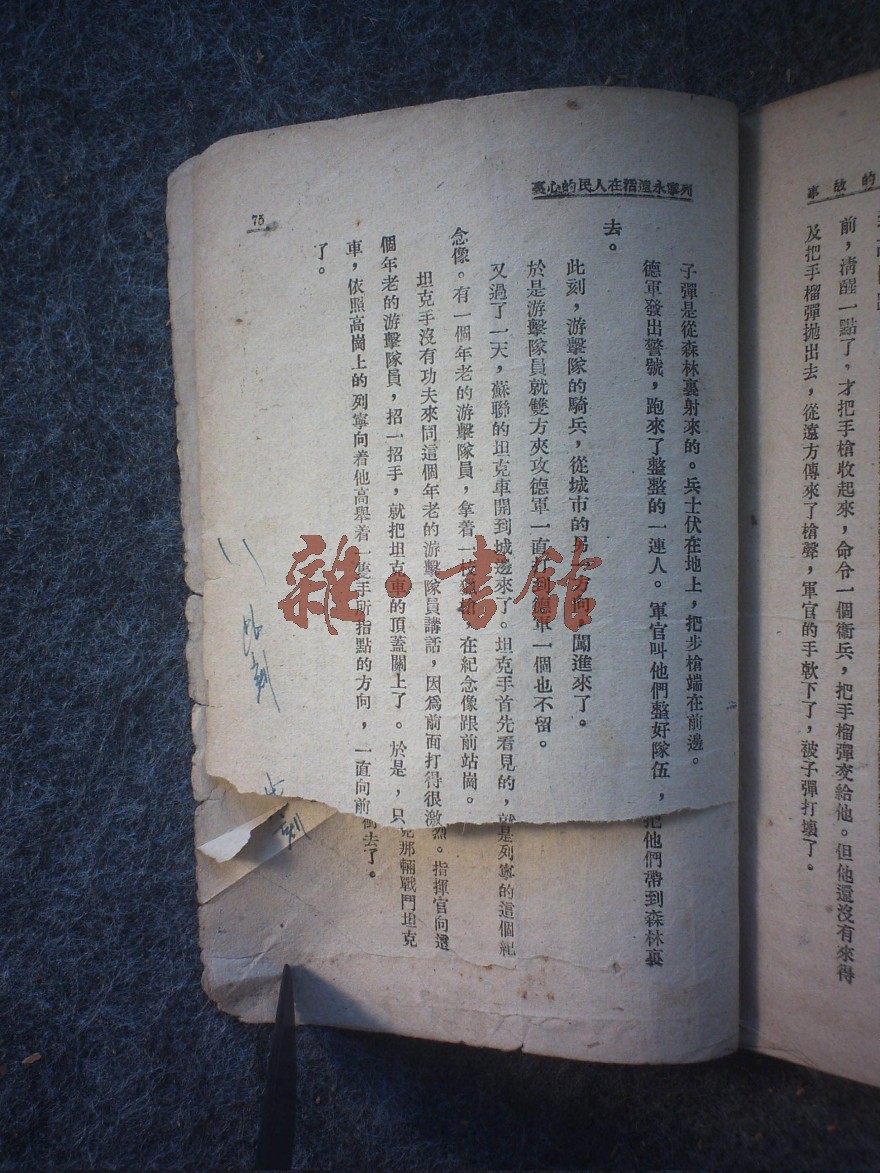 的故事
前，清醒一點了，才把手槍收起來，命令一個衞兵，把手榴彈交給他。但他還沒有來得
及把手榴彈拋出去，從遠方傳來了槍聲，軍官的手軟下了，被子彈打壞了。
列寧永遠活在人民的心裏
子彈是從森林裏射來的。兵士伏在地上，把步槍端在前邊。
德軍發出警號，跑來了整整的一連人。軍官叫他們整好隊伍，把他們帶到森林裏
去。
此刻，游擊隊的騎兵，從城市的另一方向，闖進來了。
於是游擊隊員就雙方夾攻德軍一直打到德軍一個也不留。
又過了一天，蘇聯的坦克車開到城邊來了。坦克手首先看見的，就是列寧的這個紀
念像。有一個年老的游擊隊員，拿着一枝 在紀念像跟前站崗。
坦克手沒有功夫來同這個年老的游擊隊員講話，因爲前面打得很激烈。指揮官向這
個年老的游擊隊員，招一招手，就把坦克車的頂蓋關上了。於是，只見那輛戰鬥坦克
車，依照高崗上的列寧向着他高舉着一隻手所指點的方向，一直向前衝去了。
了。
75
雜·書館